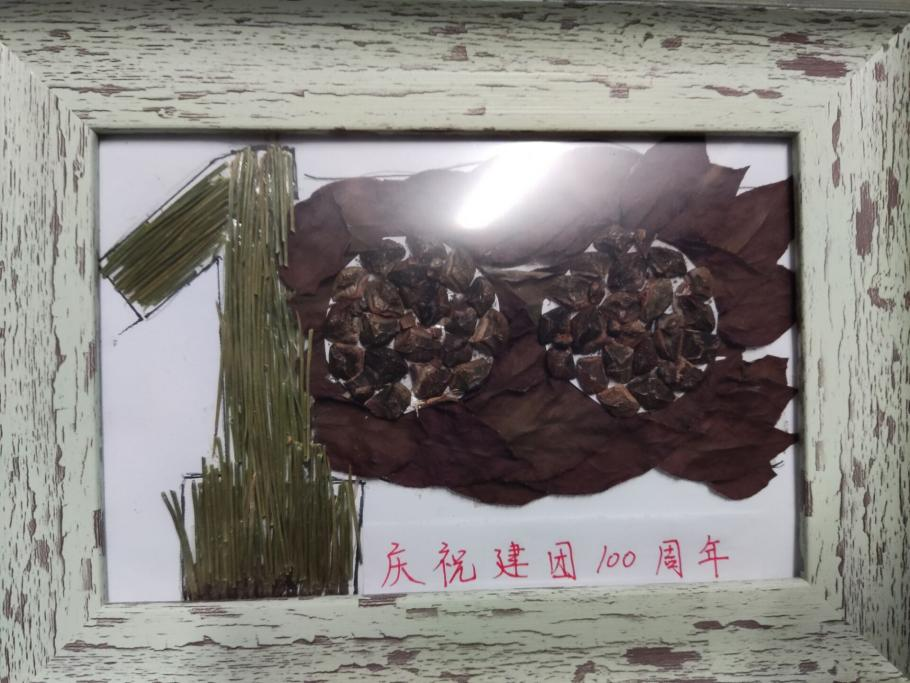 庆祝建团100周年